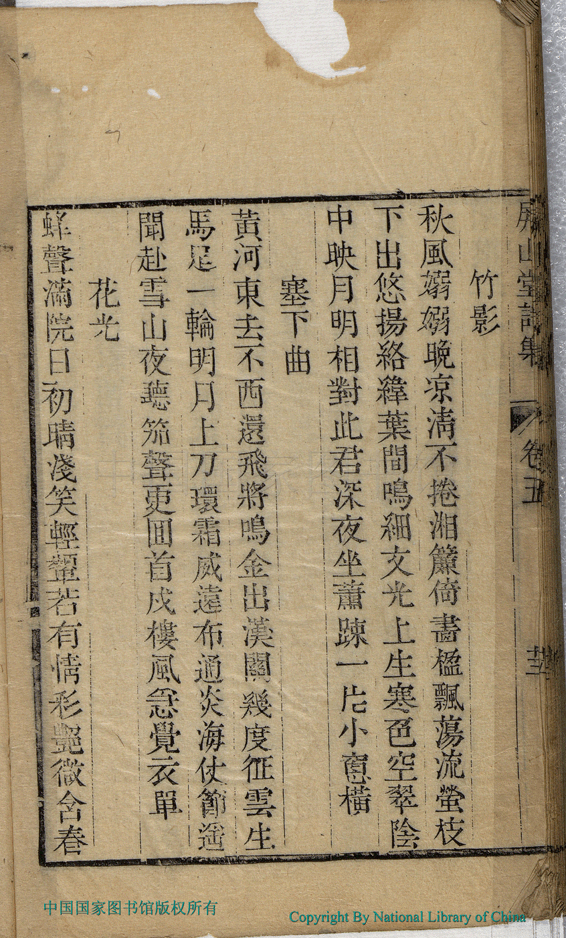 屏山堂詩集 卷五
竹影
秋風嫋嫋晚凉清不捲湘簾倚畵楹飄蕩流螢枝
下出悠揚絡緯葉間鳴細文光上生寒色空翠陰
中映月明相對此君深夜坐蕭踈一片小窻橫
塞下曲
黃河東去不西還飛將鳴金出漢關幾度征雲生
馬足一輪明月上刀環霜威遠布通炎海仗節遥
聞赴雪山夜聽笳聲更囬首戍樓風急覺衣單
花光
蜂聲滿院日初晴淺笑輕顰若有情彩艷微含春
中国国家图书馆版权所有
Copyright By National Library of China